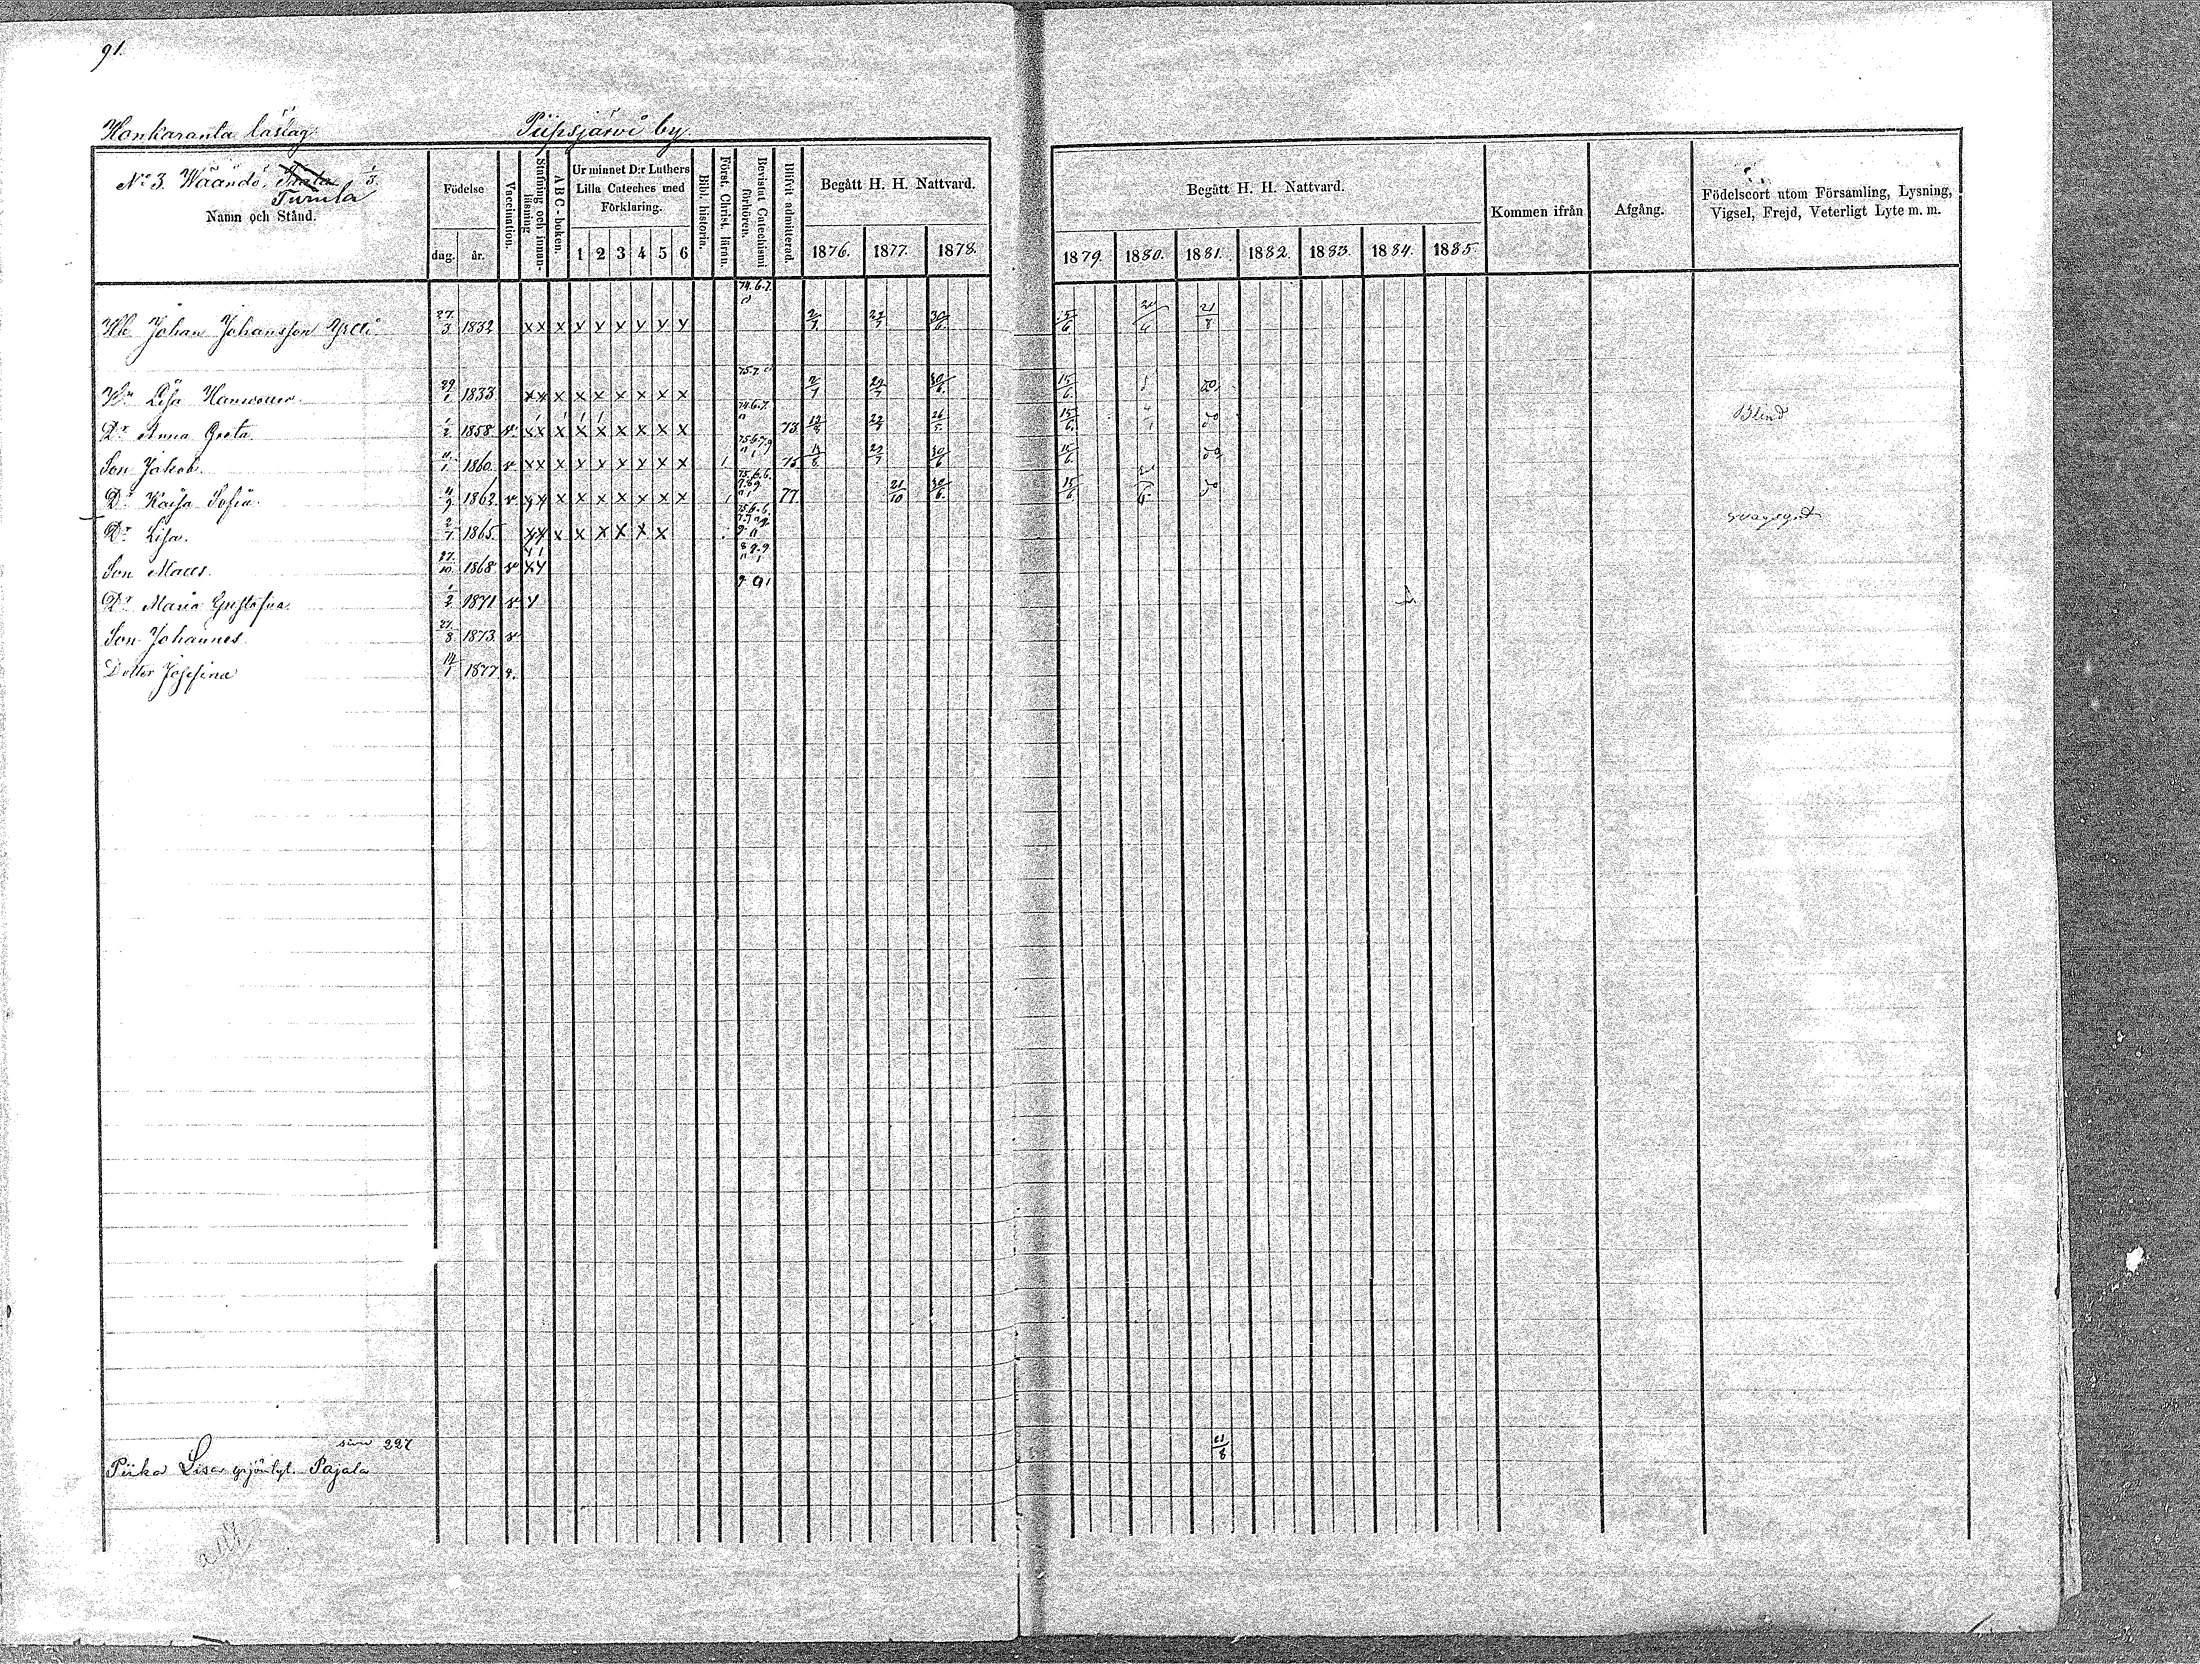 91.
Honkaranta läslag.
Piipsjärvi by.
No 3. Wäändö. Turula 1/3.
Namn och Stånd.
Födelse
dag. år.
Vaccination.
Stafning och innan-läsning
A B C-boken.
Ur minnet D:r Luthers Lilla Cateches med Förklaring.
1 2 3 4 5 6
Bibl. historia.
Först. Christ. läran.
Bevistat Catechismi förhören.
Blifvit admitterad.
Begått H. H. Nattvard.
1876. 1877. 1878.
Begått H. H. Nattvard.
1879. 1880. 1881. 1882. 1883. 1884. 1885.
Kommen ifrån
Afgång.
Födelseort utom Församling, Lysning, Vigsel, Frejd, Veterligt Lyte m. m.
Johan Johansson 27/3 1832 x x x x x x x x x 2/7 22/7 30/6 15/6 21/8
Lisa 29/1 1833 x x x x x x x x x 2/7 22/7 30/6 15/6 do
Dr Anna Greta 1/2 1858 v x x x x x x x x x 73 22/7 15/6 do Blind
Son Jakob 1860 v x x x x x x x x x 75 22/7 30/6 15/6 do
Dr Kaisa Sofia 4/9 1862 v x x x x x x x x x 77 21/10 30/6 15/6 do
Dr Lisa. 2/7 1865 x x x x x x x x svagsynt
Son Matts. 27/10 1868 v x x
Dr Maria Gustafva 1/2 1871 v x
Son Johannes 27/8 1873 v
Dotter Josefina 14/1 1877 v.
227
Piika Lisa Pajala 21/8